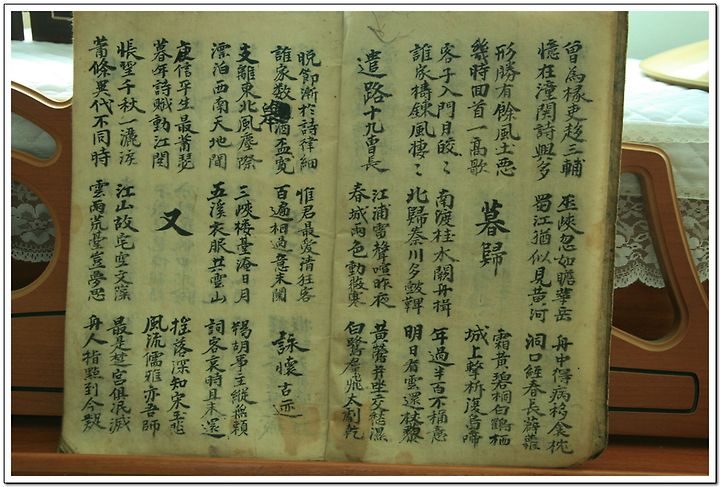 曾為掾吏趍三輔 巫峽忽如瞻華岳 舟中得病移衾枕
憶在潼關詩興多 蜀江猶似見黃河 洞口經春長薜蘿
形勝有餘風土惡
幾時回首一高歌
暮歸
霜黃碧桐白鶴栖
城上擊柝復烏啼
客子入門月皎〻 南渡桂水闕舟楫 年過半百不稱意
誰家擣鍊風棲〻 北歸秦川多鼓鞞 明日看雲還杖藜
遣路十九曾長
江浦雷聲喧昨夜 黃鶯並坐交愁濕
春城雨色動微寒 白鷺群飛太劇乾
晚節漸於詩律細 惟君最愛清狂客
誰家數酒盃寬 百遍相過意未闌
詠懷古迹
支離東北風塵際 三峽樓臺淹日月 羯胡事主縱無賴
漂泊西南天地間 五溪衣服共雲山 詞客哀時且未還
庾信平生最蕭瑟
暮年詩賦動江関
又
搖落深知宋玉悲
風流儒雅亦吾師
悵望千秋一灑淚 江山故宅空文藻 最是楚宮俱泯滅
蕭條異代不同時 雲雨荒臺豈夢思 舟人指點到今疑